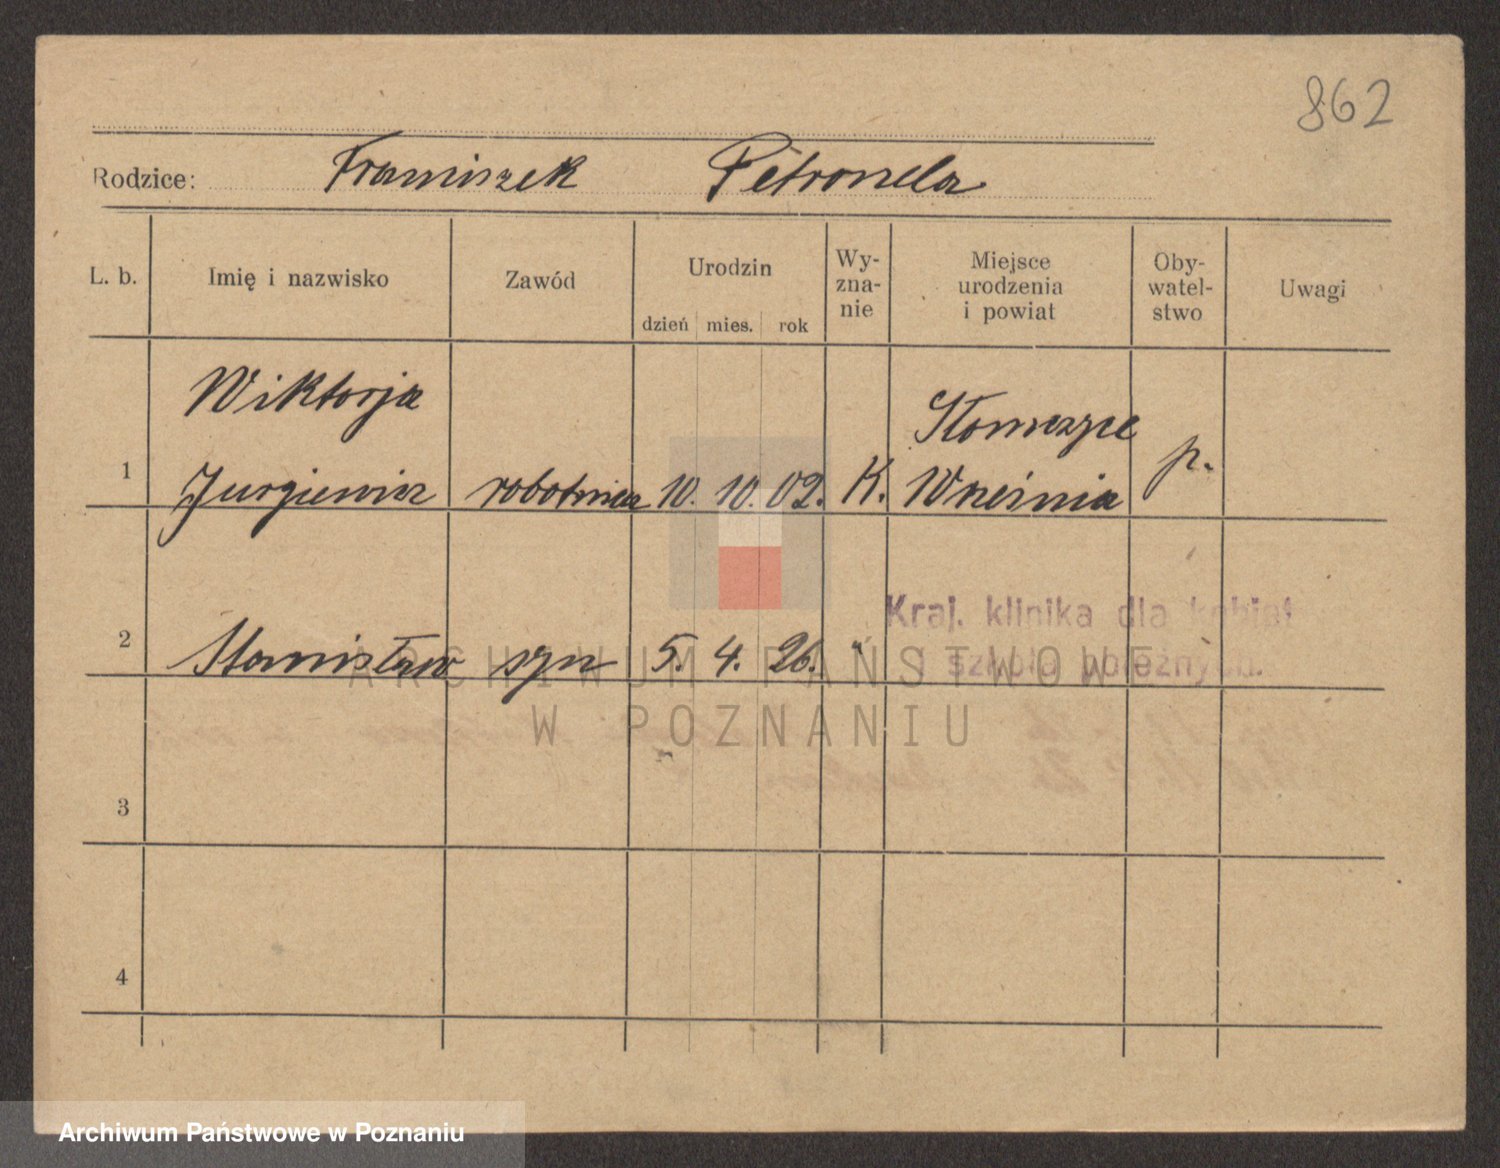 862
Rodzice: Franciszek Petronela
L. b. Imię i nazwisko Zawód Urodzin dzień mies. rok Wy-zna-nie Miejsce urodzenia i powiat Oby-watel-stwo Uwagi
Wiktorja Słomczyce
1 Jurgiewicz robotnica 10. 10. 02. K. Września p.
Kraj. klinika dla kobiet
2 Stanisław syn 5. 4. 26. " i szkoła położnych.
ARCHIWUM PAŃSTWOWE
W POZNANIU
3
4
Archiwum Państwowe w Poznaniu